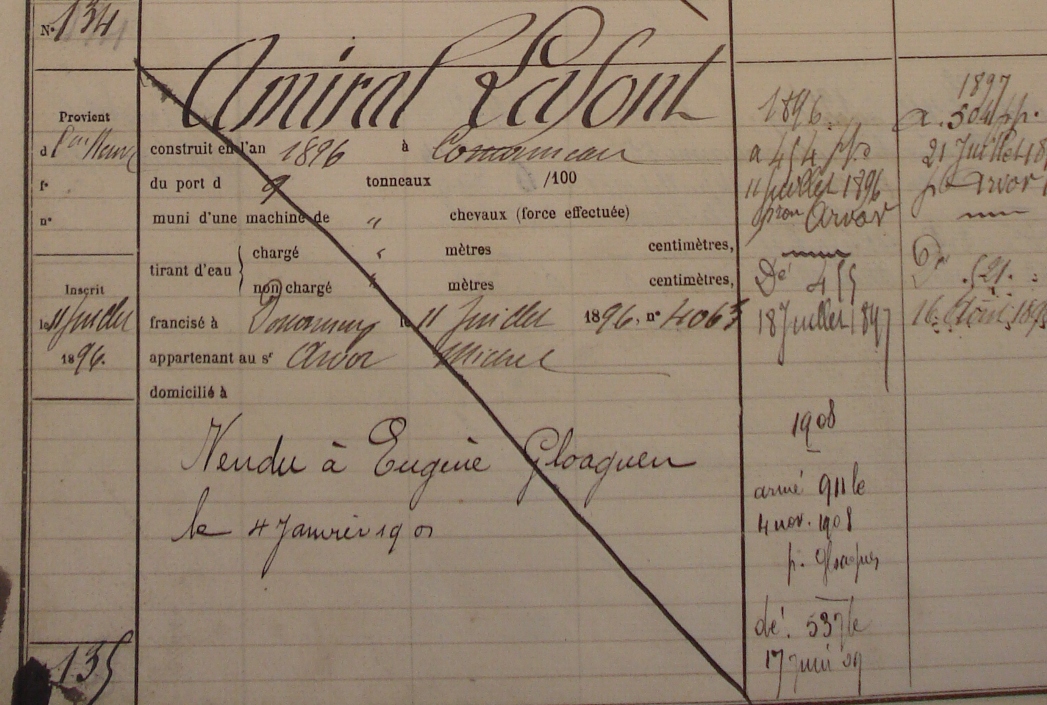 N° 134
Amiral Lafont
Provient
d
f°
n°
Inscrit
le 11 Juillet
1896.
construit en l'an 1896 à Concarneau
du port d 9 tonneaux /100
muni d'une machine de " chevaux (force effectuée)
tirant d'eau
chargé " mètres centimètres,
non chargé " mètres centimètres,
francisé à le 11 Juillet 1896, n° 4063
appartenant au sr Arvor Michel
domicilié à
Vendu à Eugène Gloaguen
le 4 Janvier 1901
1896
a 454
11 juillet 1896
Arvor
Dé 455
18 Juillet 1897
1908
armé 911 le
4 nov. 1908
p. Gloaguen
dé. 537 le
17 juin 09
1897
a. 504
21 Juillet 18
p. Arvor
Dé 521.
16 Août 189
135